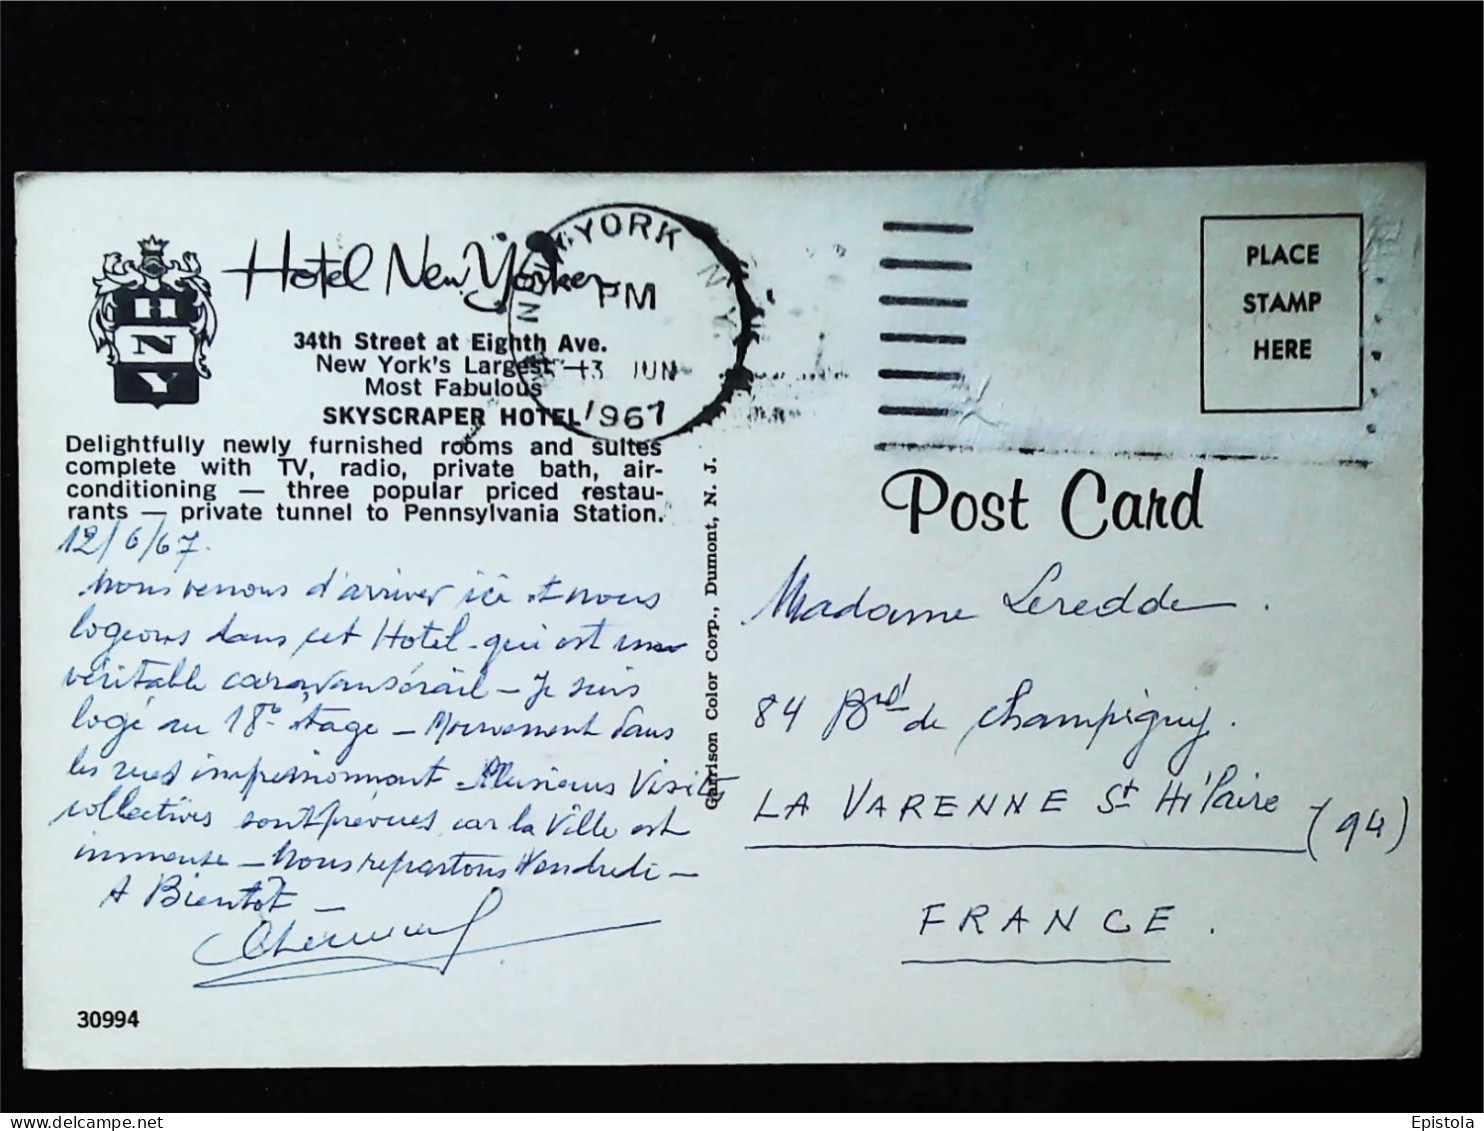 Hotel New Yorker
H
N
Y
34th Street at Eighth Ave.
New York's Largest —
Most Fabulous
SKYSCRAPER HOTEL
Delightfully newly furnished rooms and suites
complete with TV, radio, private bath, air-
conditioning — three popular priced restau-
rants — private tunnel to Pennsylvania Station.
NEW YORK N.Y.
PM
13 JUN
1967
12/6/67.
Nous venons d'arriver ici et nous
logeons dans cet Hotel - qui est un
véritable caravansérail - Je suis
logé au 18e étage - Mouvement dans
les rues impressionnant - Plusieurs Visites
collectives sont prévues car la Ville est
immense - Nous repartons Vendredi -
A Bientôt -
30994
Garrison Color Corp., Dumont, N. J.
PLACE
STAMP
HERE
Post Card
Madame Leredde.
84 Brd de Champigny.
LA VARENNE St Hilaire
(94)
FRANCE.
Delcampe.net
Epistola